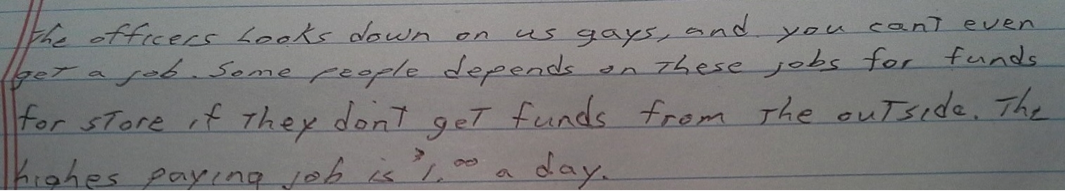 The officers Looks down on us gays, and you can't even
get a job. Some people depends on These jobs for funds
for sTore if They don't geT funds from The ouTside. The
highes paying job is $1.00 a day.